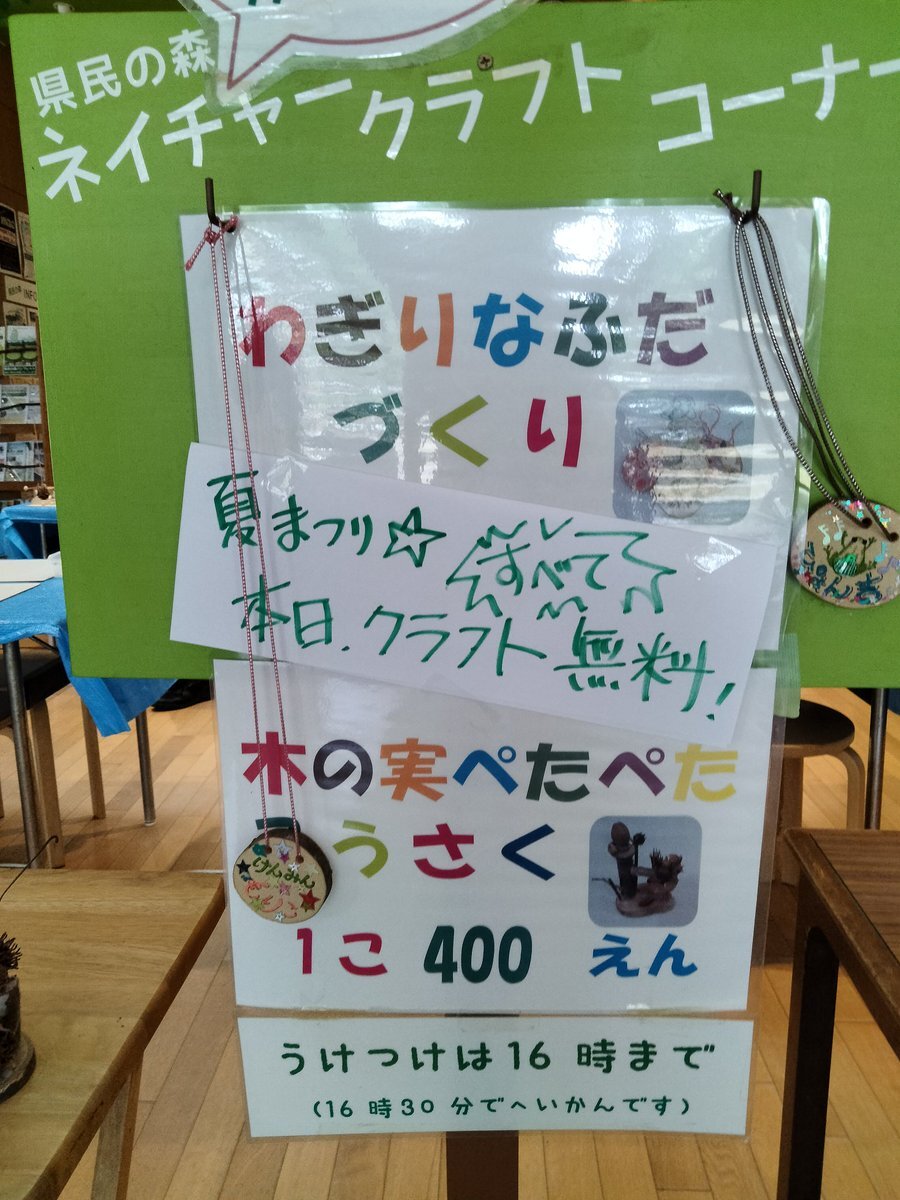 県民の森
ネイチャークラフトコーナー
わぎりなふだ
づくり
夏まつり☆
すべて
本日、クラフト無料!
木の実ぺたぺた
うさく
1こ 400 えん
けんみん
うけつけは16時まで
(16時30分でへいかんです)